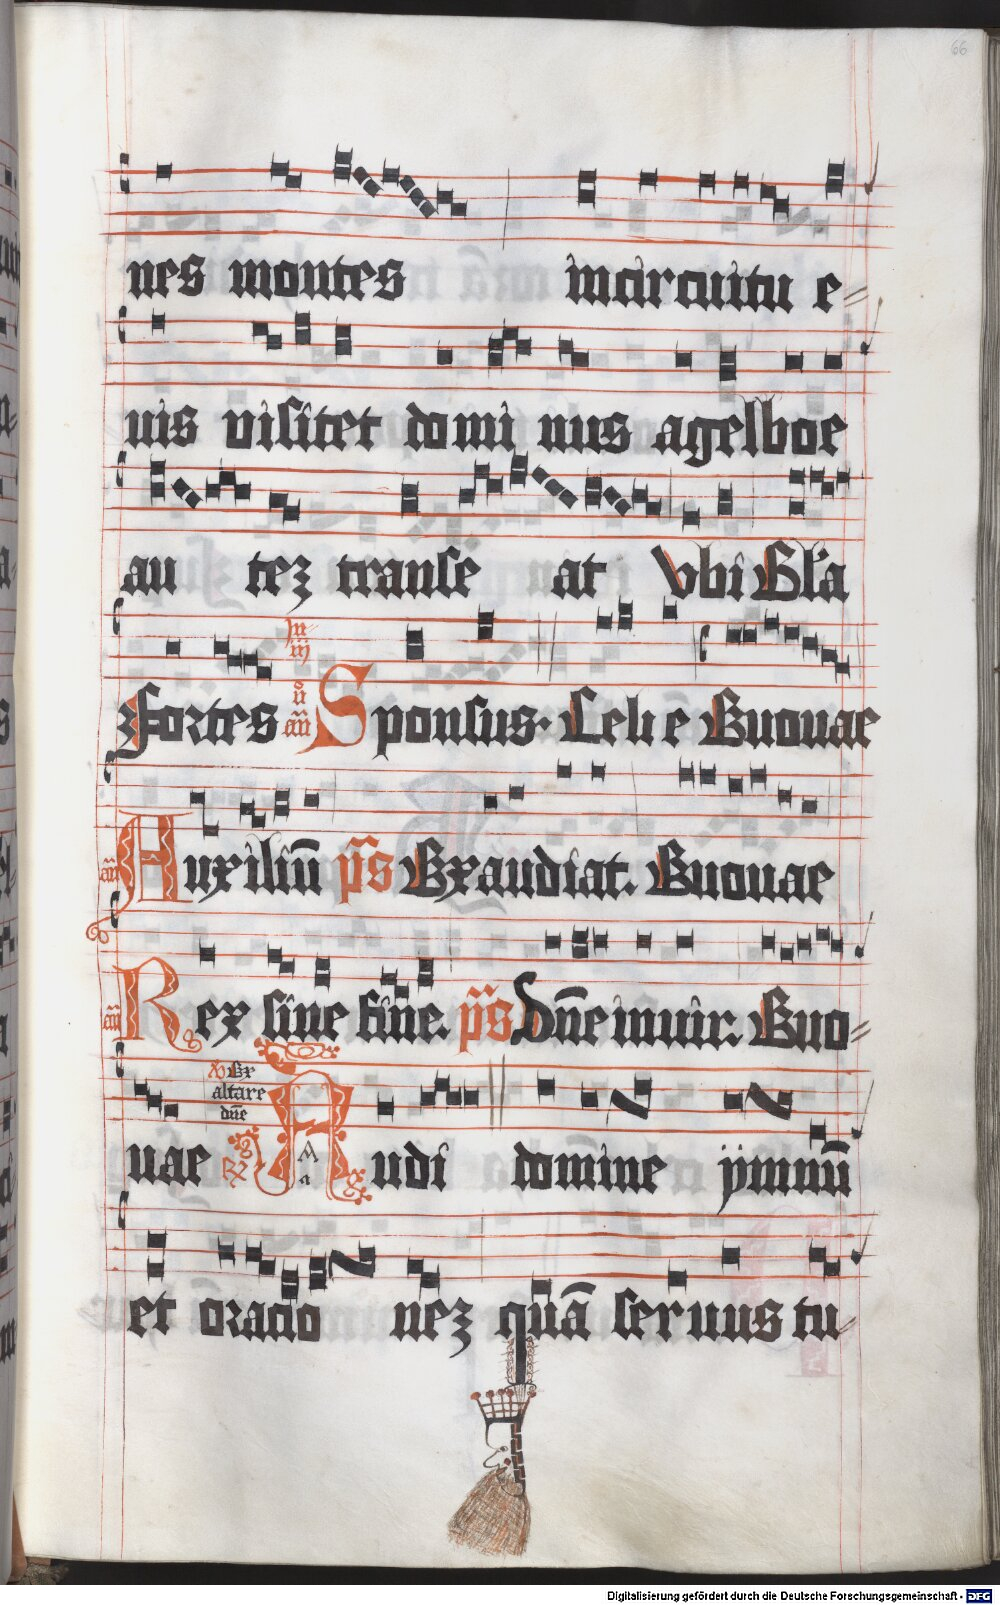 66
nes montes incircuitu e=
uis visitet domi nus agelboe
au tez transe at Vbi Gl'a
Fortes In iij ōu añ Sponsus. Celi e Euouae
añ Auxiliū p̄s Exaudiat. Euouae
añ Rex sine fine. p̄s Dn̄e inuir. Euo=
uae Ex altare dn̄e Audi domine ȳmnū
et oracio nez quā seruus tu=
Digitalisierung gefördert durch die Deutsche Forschungsgemeinschaft - DFG